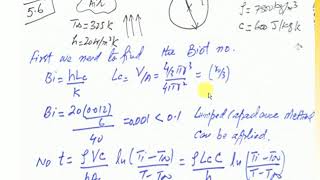 5.6
air
T∞ = 325K
h = 20W/m²K
ρ = 7800kg/m3
c = 600 J/kg k
First we need to find the Biot no.
Bi = hLc/K Lc = V/A = 4/3πr³/4πr² = (r/3)
Bi = 20(0.012)/6/40 = 0.001 < 0.1 Lumped Capacitance method
can be applied.
No t = ρVC/hA ln(Ti-T∞/T-T∞) = ρLcC/h ln(Ti-T∞/T-T∞)